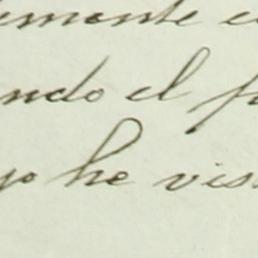 emente e
ndo el p
yo he vis